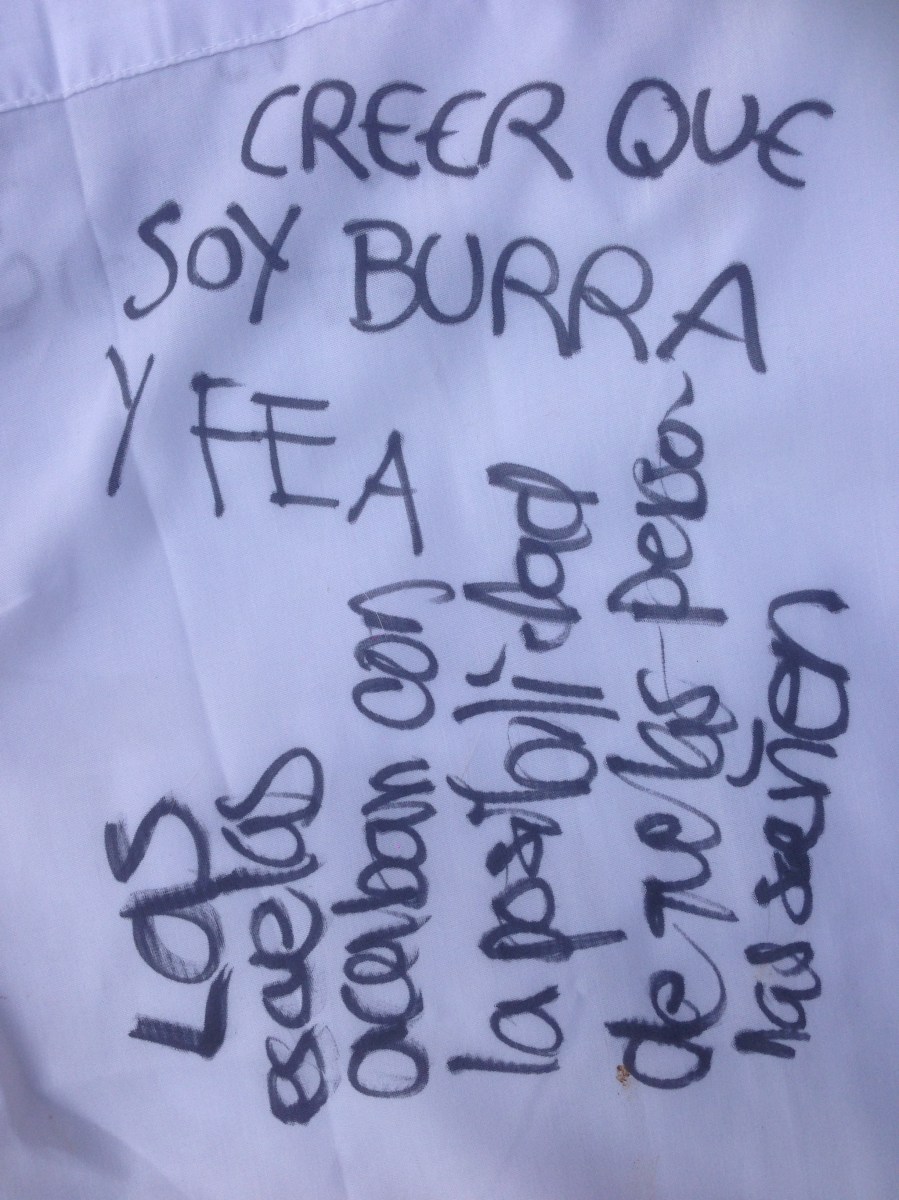 CREER QUE
SOY BURRA
Y FEA
Las
escuelas
acaban con
la posibilidad
de que las perso
nas sueñen